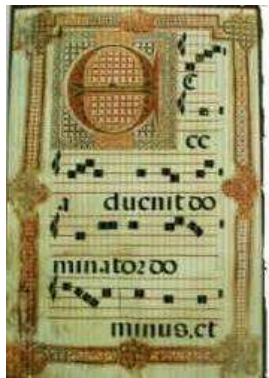 E c
ce
a duenit do
minator do
minus, et